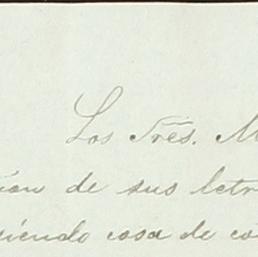 Los Tres. M
ción de sus letr
iendo cosa de co